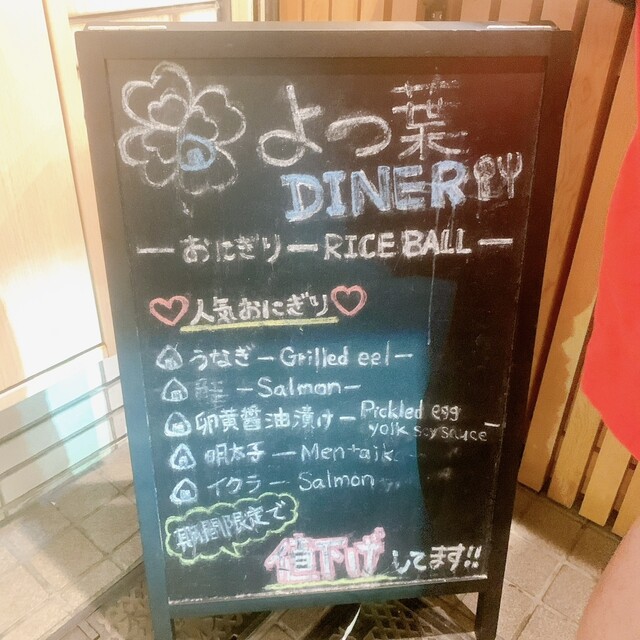 よつ葉
DINER
— おにぎり — RICE BALL —
人気おにぎり
うなぎ — Grilled eel —
鮭 — Salmon —
卵黄醤油漬け — Pickled egg
yolk soy sauce —
明太子 — Mentaik
イクラ — Salmon
期間限定で
値下げしてます!!